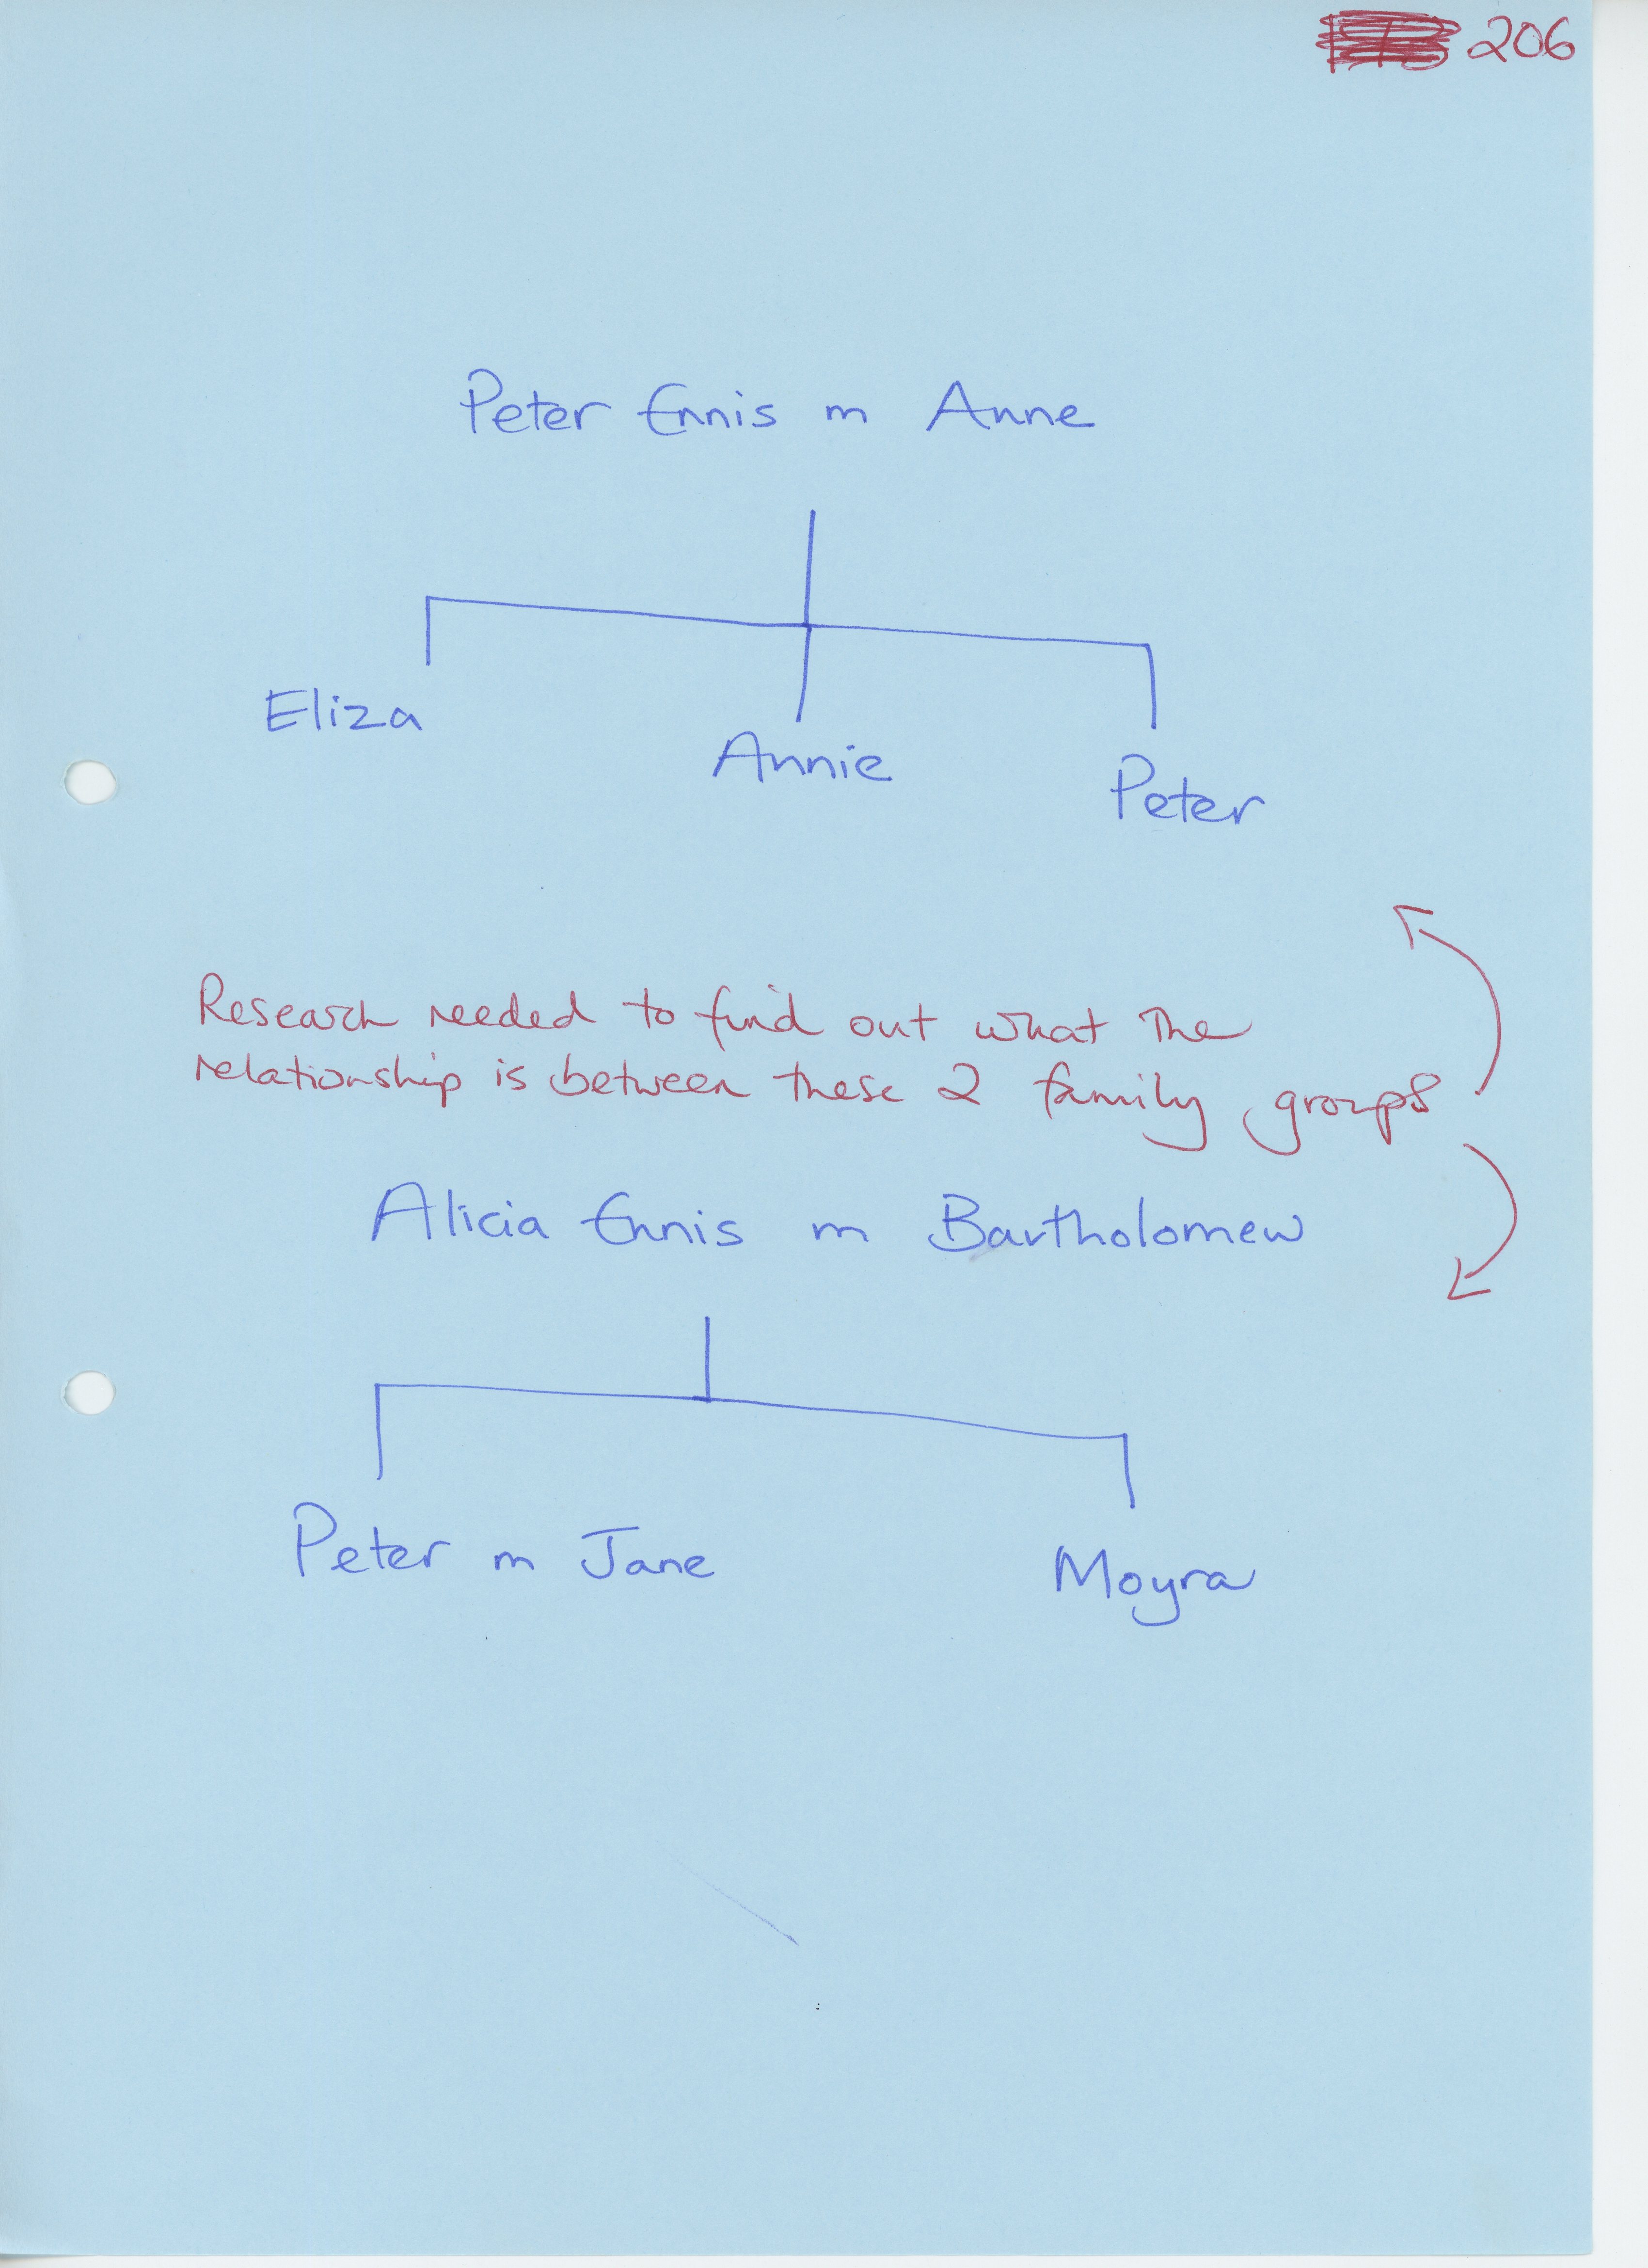 206
Peter Ennis m Anne
Eliza
Annie
Peter
Research needed to find out what the
relationship is between these 2 family groups
Alicia Ennis m Bartholomew
Peter m Jane
Moyra